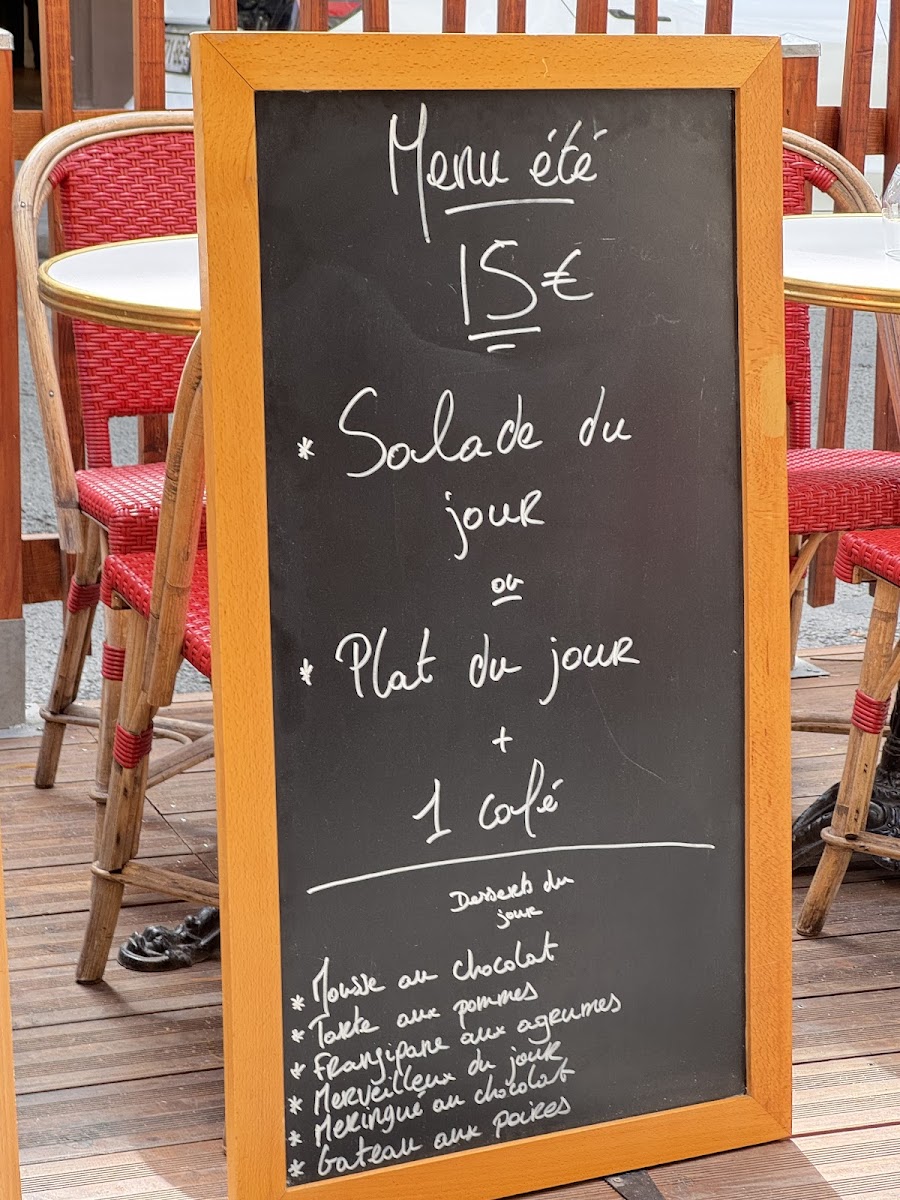 Menu été
15€
* Salade du
jour
ou
* Plat du jour
+
1 café
Desserts du
jour
* Mousse au chocolat
* Tarte aux pommes
* Frangipane aux agrumes
* Merveilleux du jour
* Meringué au chocolat
* Gateau aux poires